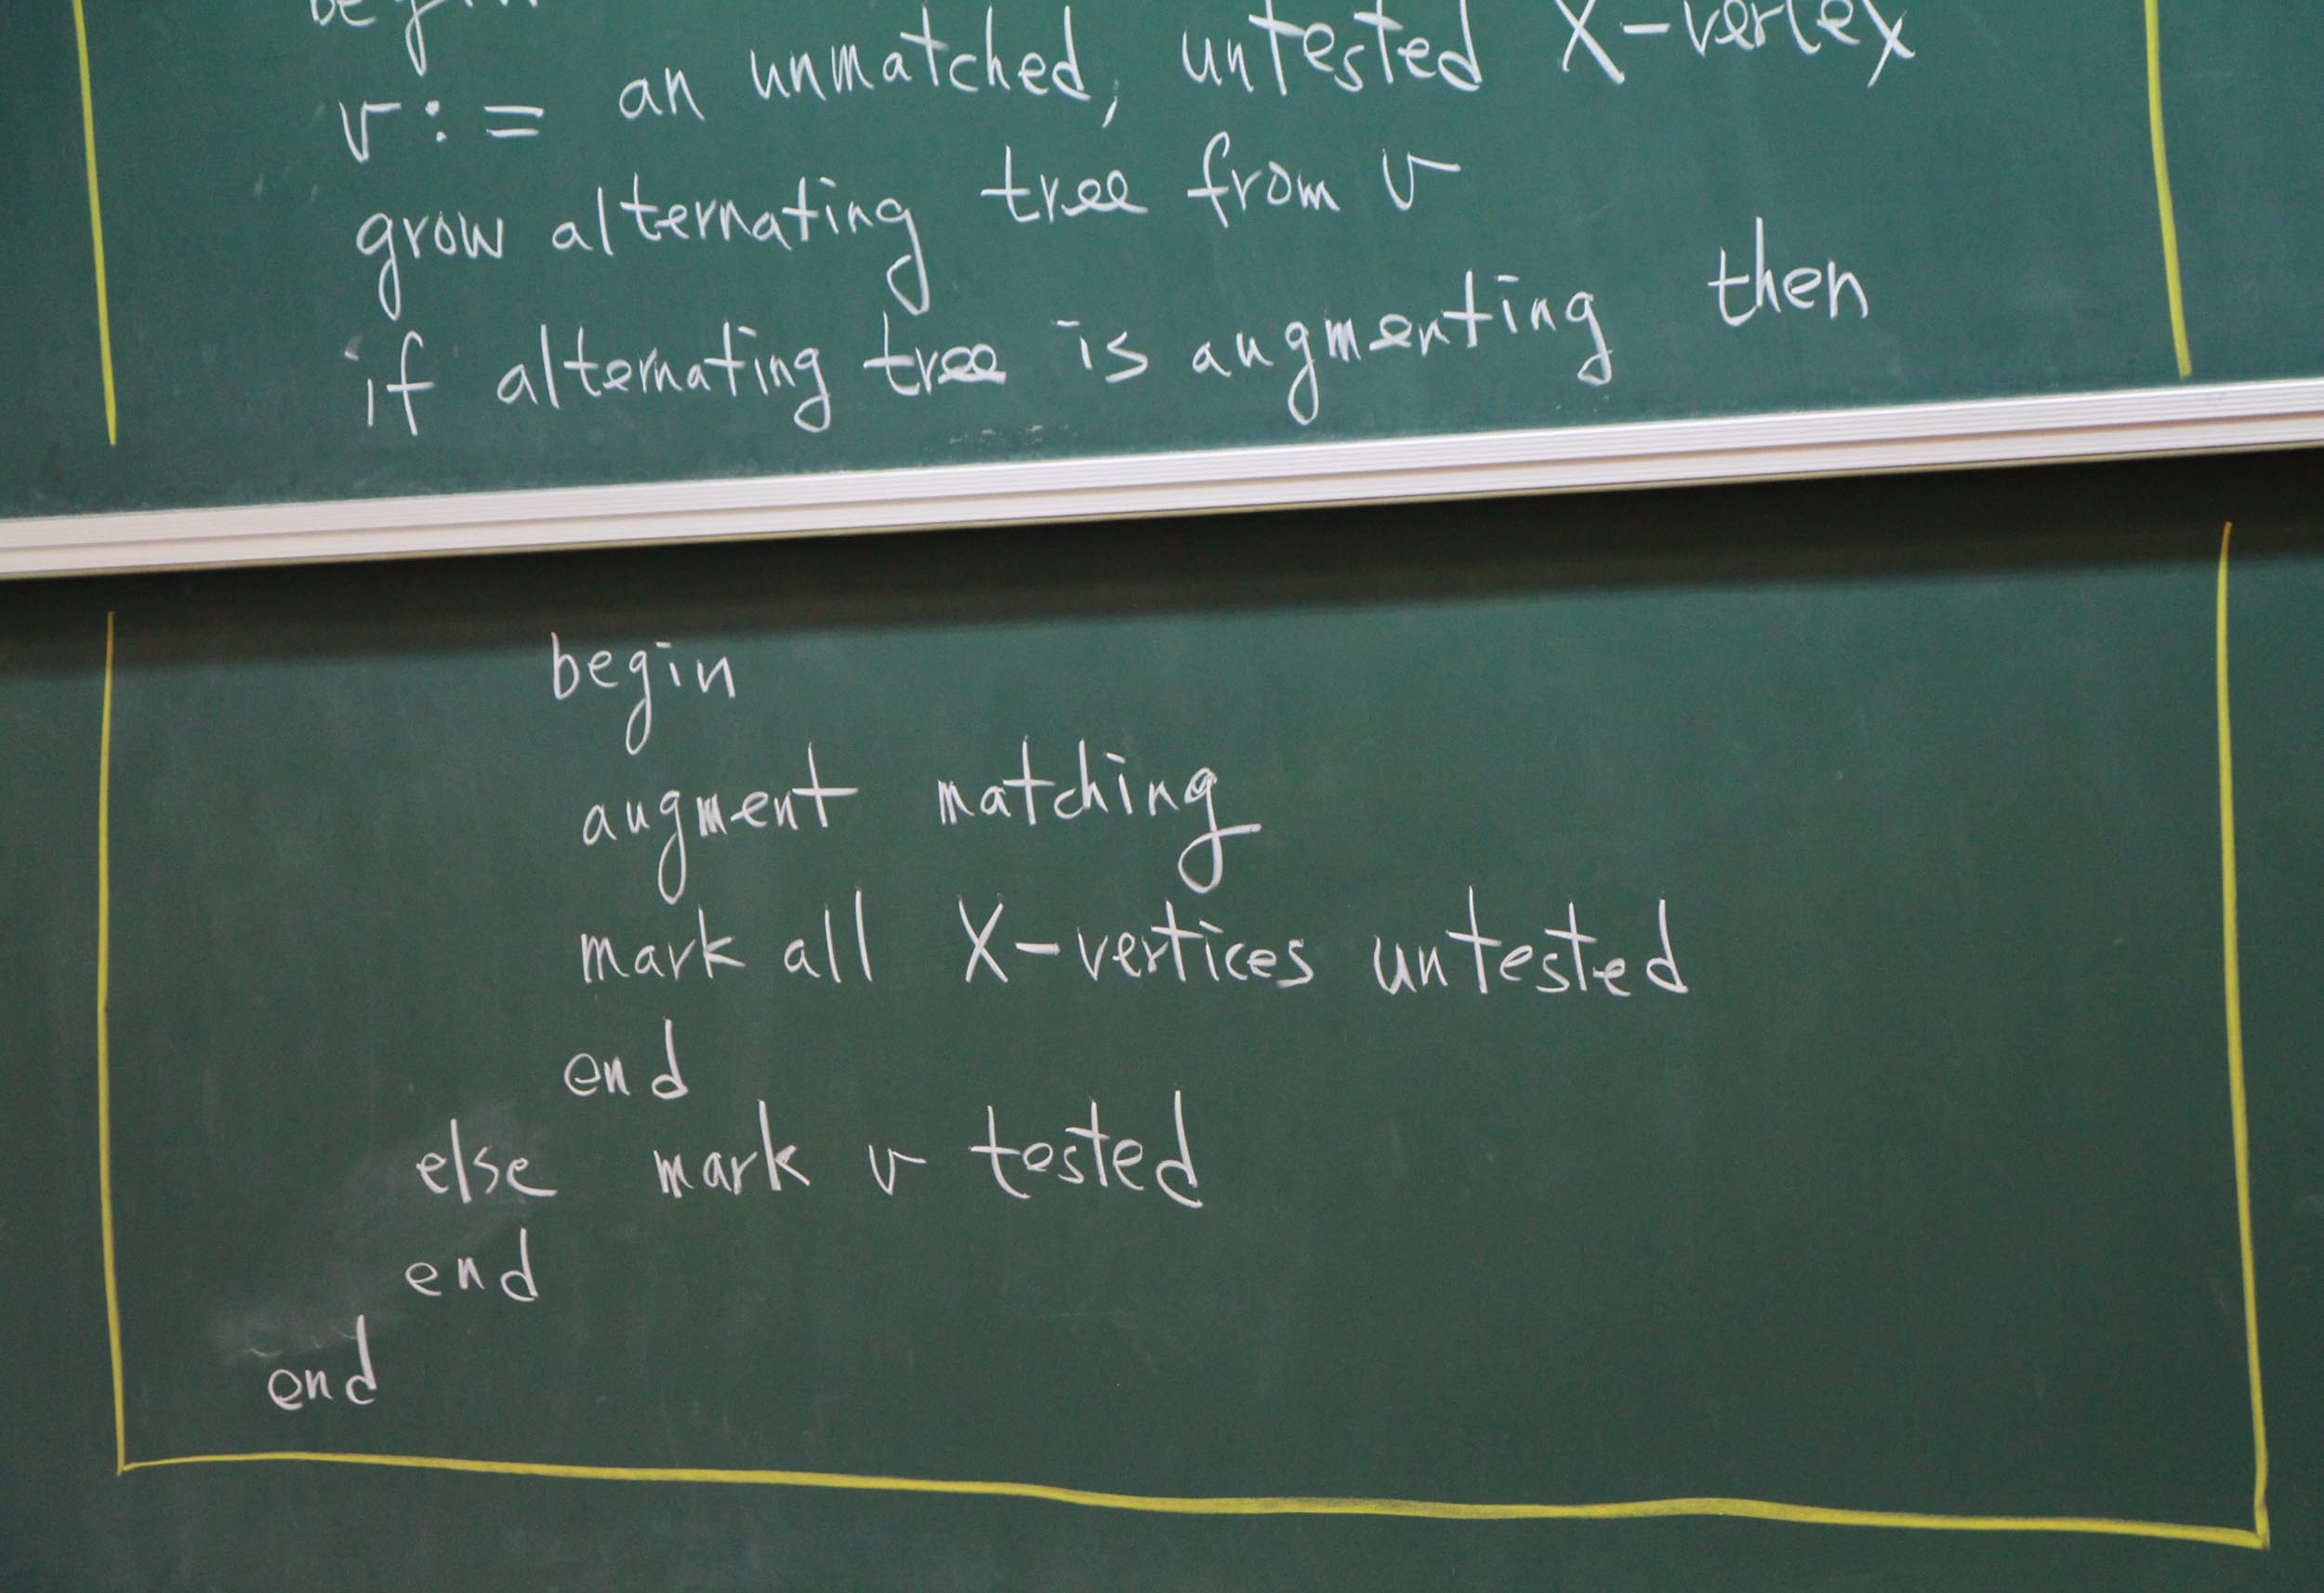 begin
v := an unmatched, untested X-vertex
grow alternating tree from v
if alternating tree is augmenting then
begin
augment matching
mark all X-vertices untested
end
else mark v tested
end
end